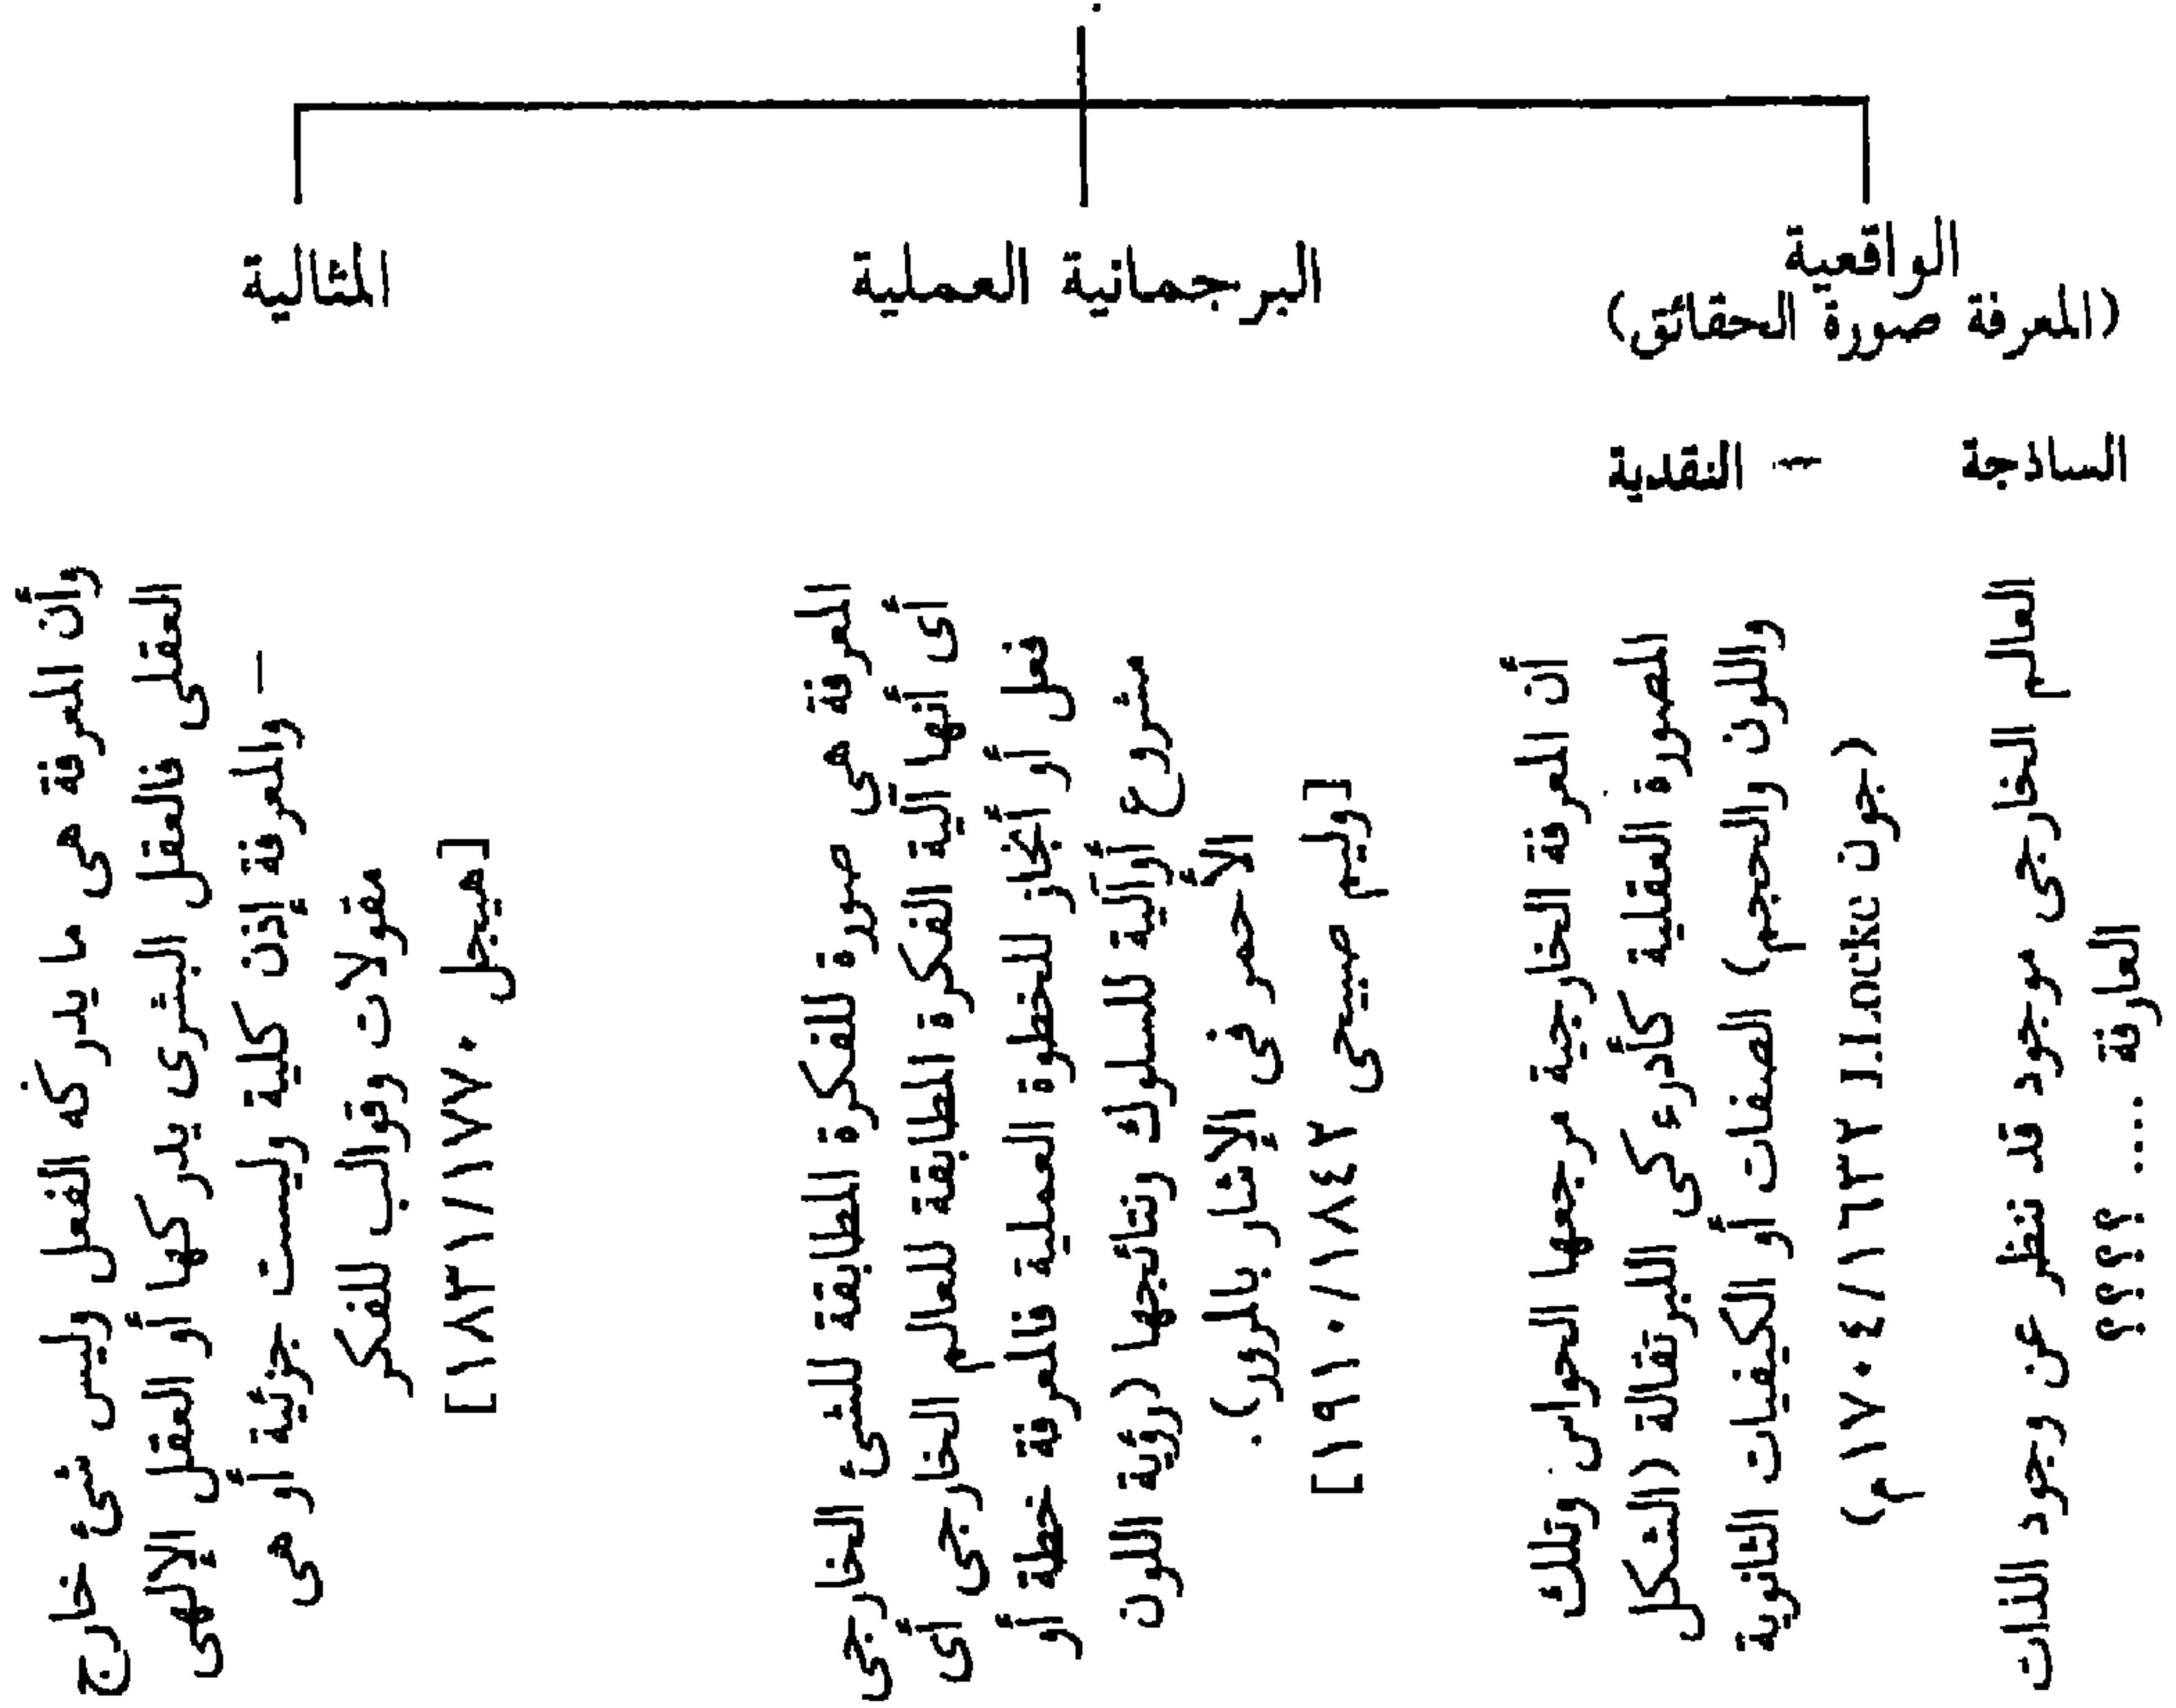 الواقعية
(المعرفة صورة الحقائق)
البرجمانية العملية
المثالية
الساذجة
– النقدية
العالم الخارجى موجود قد نظر عن وجود الذات
العارفة .... ؟؟؟؟
أن المعرفة الخارجية مرجعها الحواس وتلك
الصورة العقلية كأدرءكى البرتقالة (الشكل
واللون والحجم) الصفات أو الكفيات الثانوية
(جون J.Locke ١٦٣٢/١٧٠٤م)
المعرفة هى صورة للفكرة المطابقة للشئ الخارجى
أى أنها آلية الفكرة المطابقة للعالم الخارجى أى
فعل أو أنجاز للخطوة العملية فالمعرفة خطة أو
مشروع أوآلية للسلوك ونتائجها (رؤية اللون
الأحمر فى الإشار بالمرور).
[وليم صيحى ١٨٤٢/١٩١٠]
وأن المعرفة هى ما يدركه الفعل وليس شئ خارج
العقلى فالعقل البشرى يدركها أو العقل الإلهى
– والمعرفة إذن كلية وليست جزئية أو هى
مقولات وقوالب للفكر
[هيجل ١٧٧٠/١٨٣١]